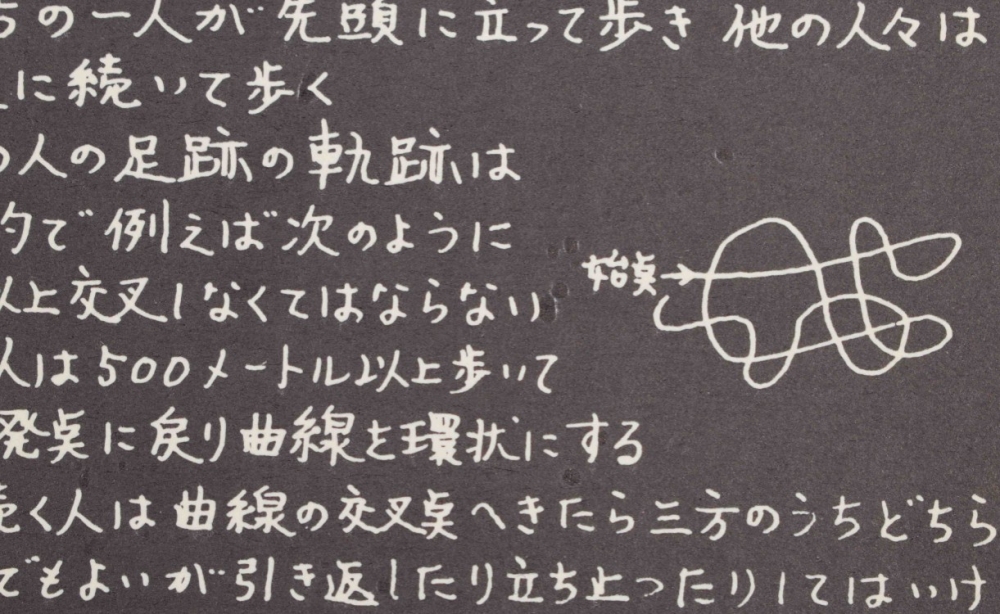 の一人が 先頭に立って歩き 他の人々は
に続いて歩く
人の足跡の軌跡は
で 例えば次のように
始点
以上交叉しなくてはならない
人は500メートル以上歩いて
発点に戻り曲線を環状にする
続く人は曲線の交叉点へきたら三方のうちどちら
でもよいが引き返したり立ち止ったりしてはいけ